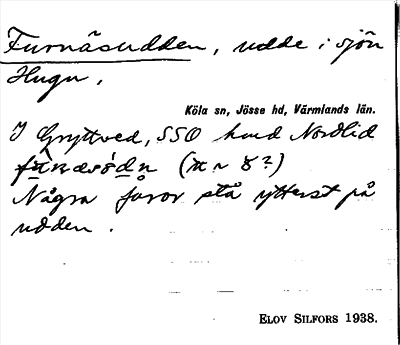 Furnäsudden, udde i sjön
Hugn.
Köla sn, Jösse hd, Värmlands län.
I Gryttved, SSO hmd Nordlid
(π ~ 8?)
Några furor stå ytterst på
udden.
ELOV SILFORS 1938.